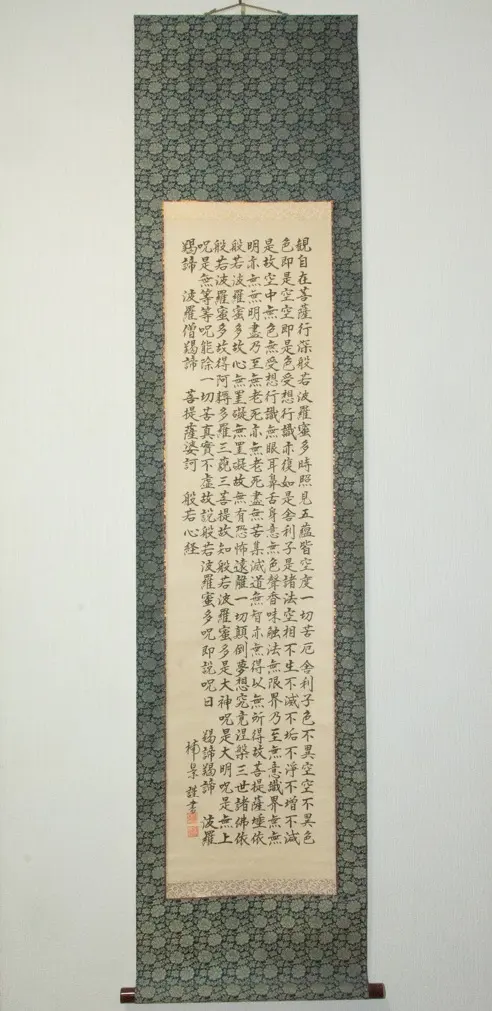 觀自在菩薩行深般若波羅蜜多時照見五蘊皆空度一切苦厄舍利子色不異空空不異色
色即是空空即是色受想行識亦復如是舍利子是諸法空相不生不滅不垢不淨不增不減
是故空中無色無受想行識無眼耳鼻舌身意無色聲香味触法無眼界乃至無意識界無無
明亦無無明盡乃至無老死亦無老死盡無苦集滅道無智亦無得以無所得故菩提薩埵依
般若波羅蜜多故心無罣礙無罣礙故無有恐怖遠離一切顛倒夢想究竟涅槃三世諸佛依
般若波羅蜜多故得阿耨多羅三藐三菩提故知般若波羅蜜多是大神呪是大明呪是無上
呪是無等等呪能除一切苦真實不虚故説般若波羅蜜多呪即説呪曰 羯諦羯諦 波羅
羯諦 波羅僧羯諦 菩提薩婆訶 般若心経
景謹書